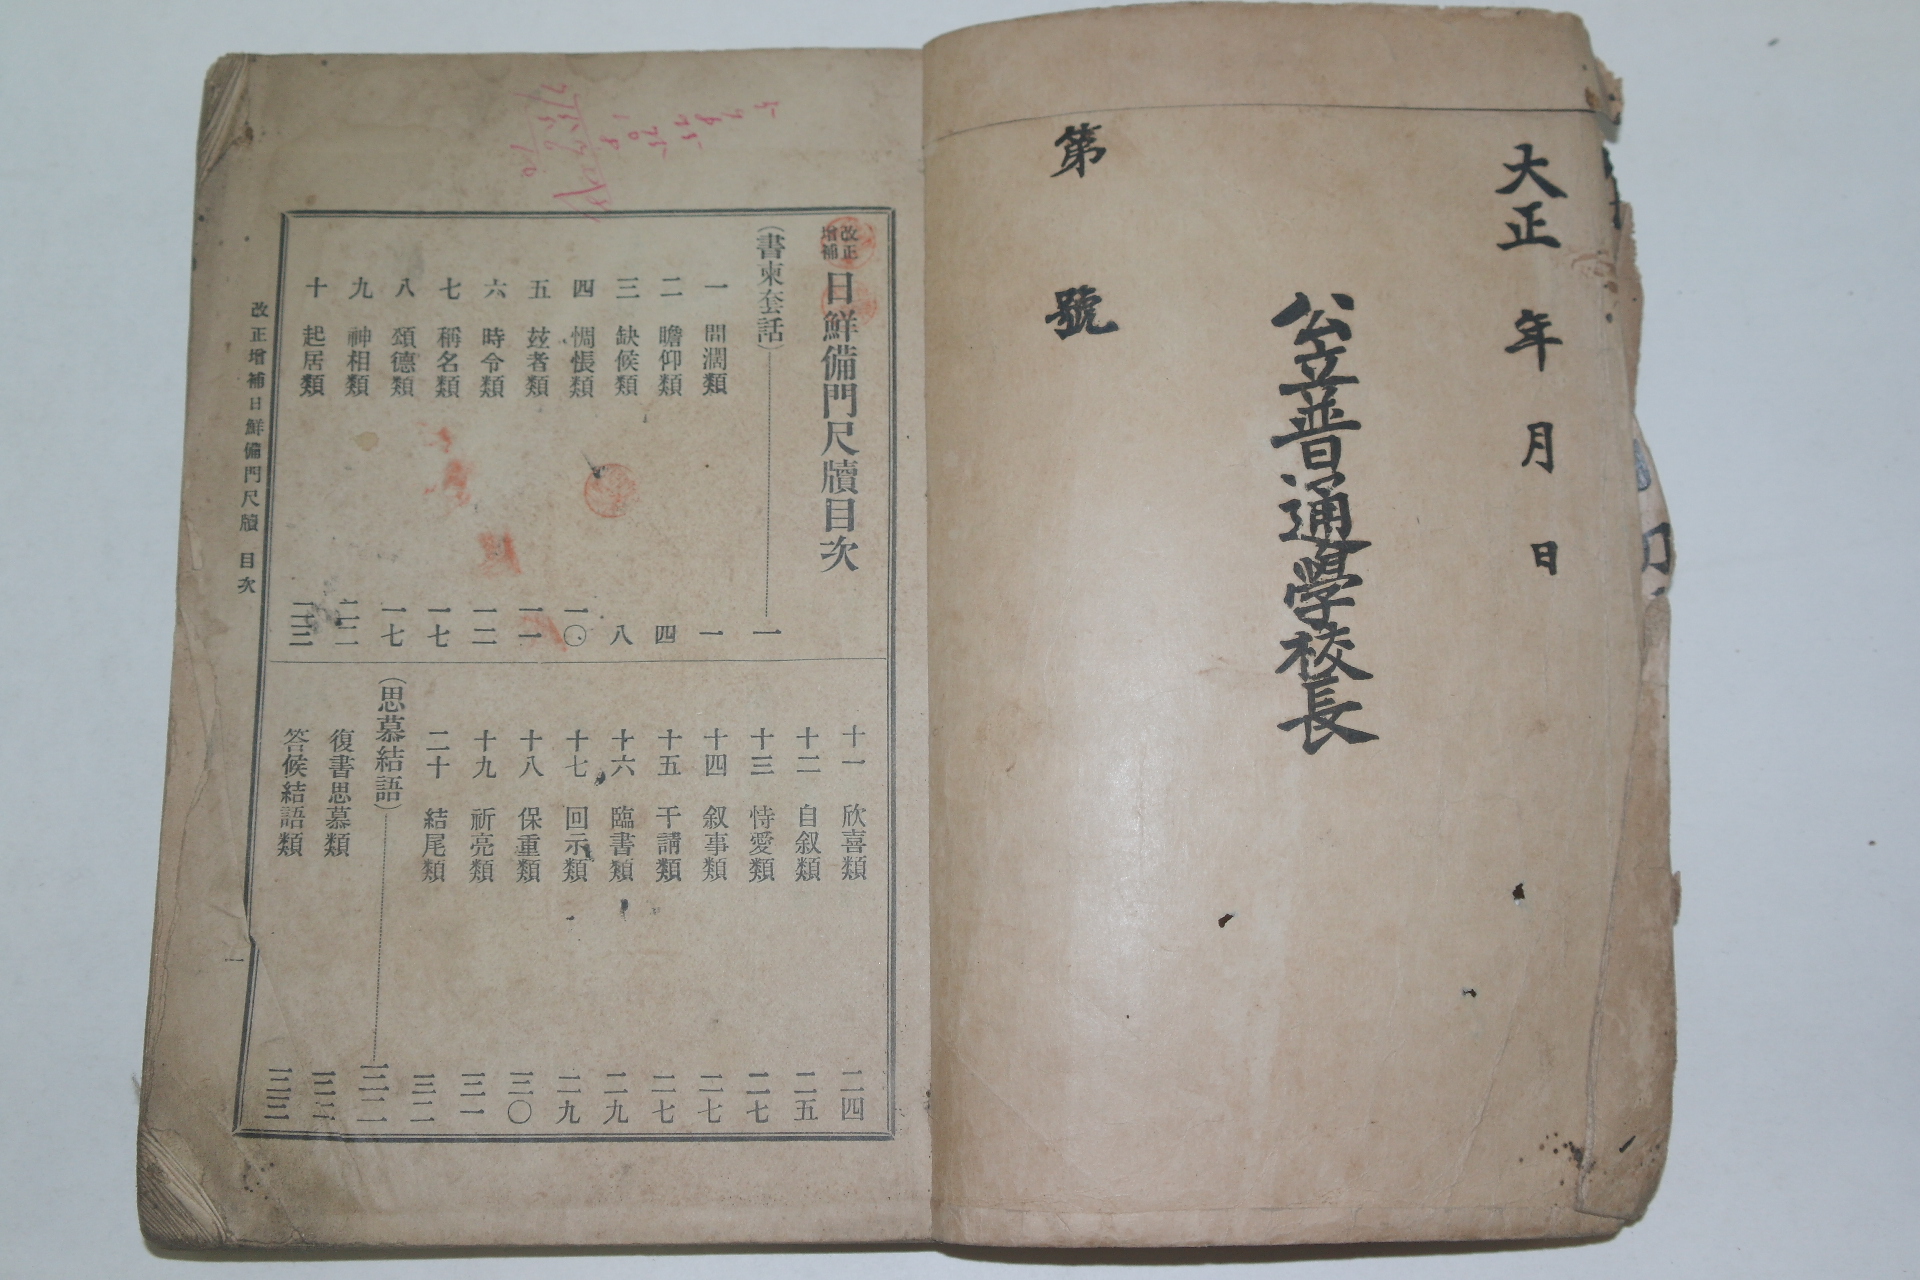 大正 年 月 日
公立普通學校長
第 號
改正增補 日鮮備門尺牘目次
(書柬套話) 一
一 間濶類 一
二 瞻仰類 四
三 缺候類 八
四 惆悵類 一〇
五 玆者類 一一
六 時令類 一二
七 稱名類 一七
八 頌德類 一七
九 神相類 二二
十 起居類 二三
十一 欣喜類 二四
十二 自叙類 二五
十三 恃愛類 二七
十四 叙事類 二七
十五 干請類 二七
十六 臨書類 二九
十七 回示類 二九
十八 保重類 三〇
十九 祈亮類 三一
二十 結尾類 三二
(思慕結語) 三二
復書思慕類 三二
答候結語類 三三
改正增補日鮮備門尺牘 目次 一